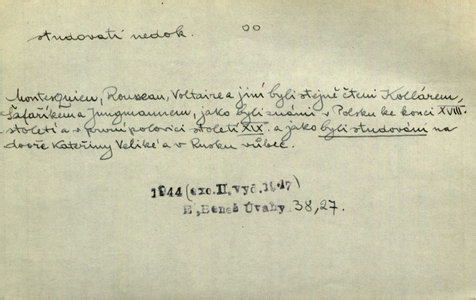 studovati nedok.
Montesquieu, Rousseau, Voltaire a jiní byli stejně čteni Kollárem,
Šafaříkem a Jungmannem, jako byli známi v Polsku ke konci XVIII.
století a v první polovici století XIX. a jako byli studováni na
dvoře Kateřiny Veliké a v Rusku vůbec.
1944 (exo. II. vyd. 1947)
E. Beneš Úvahy 38,27.